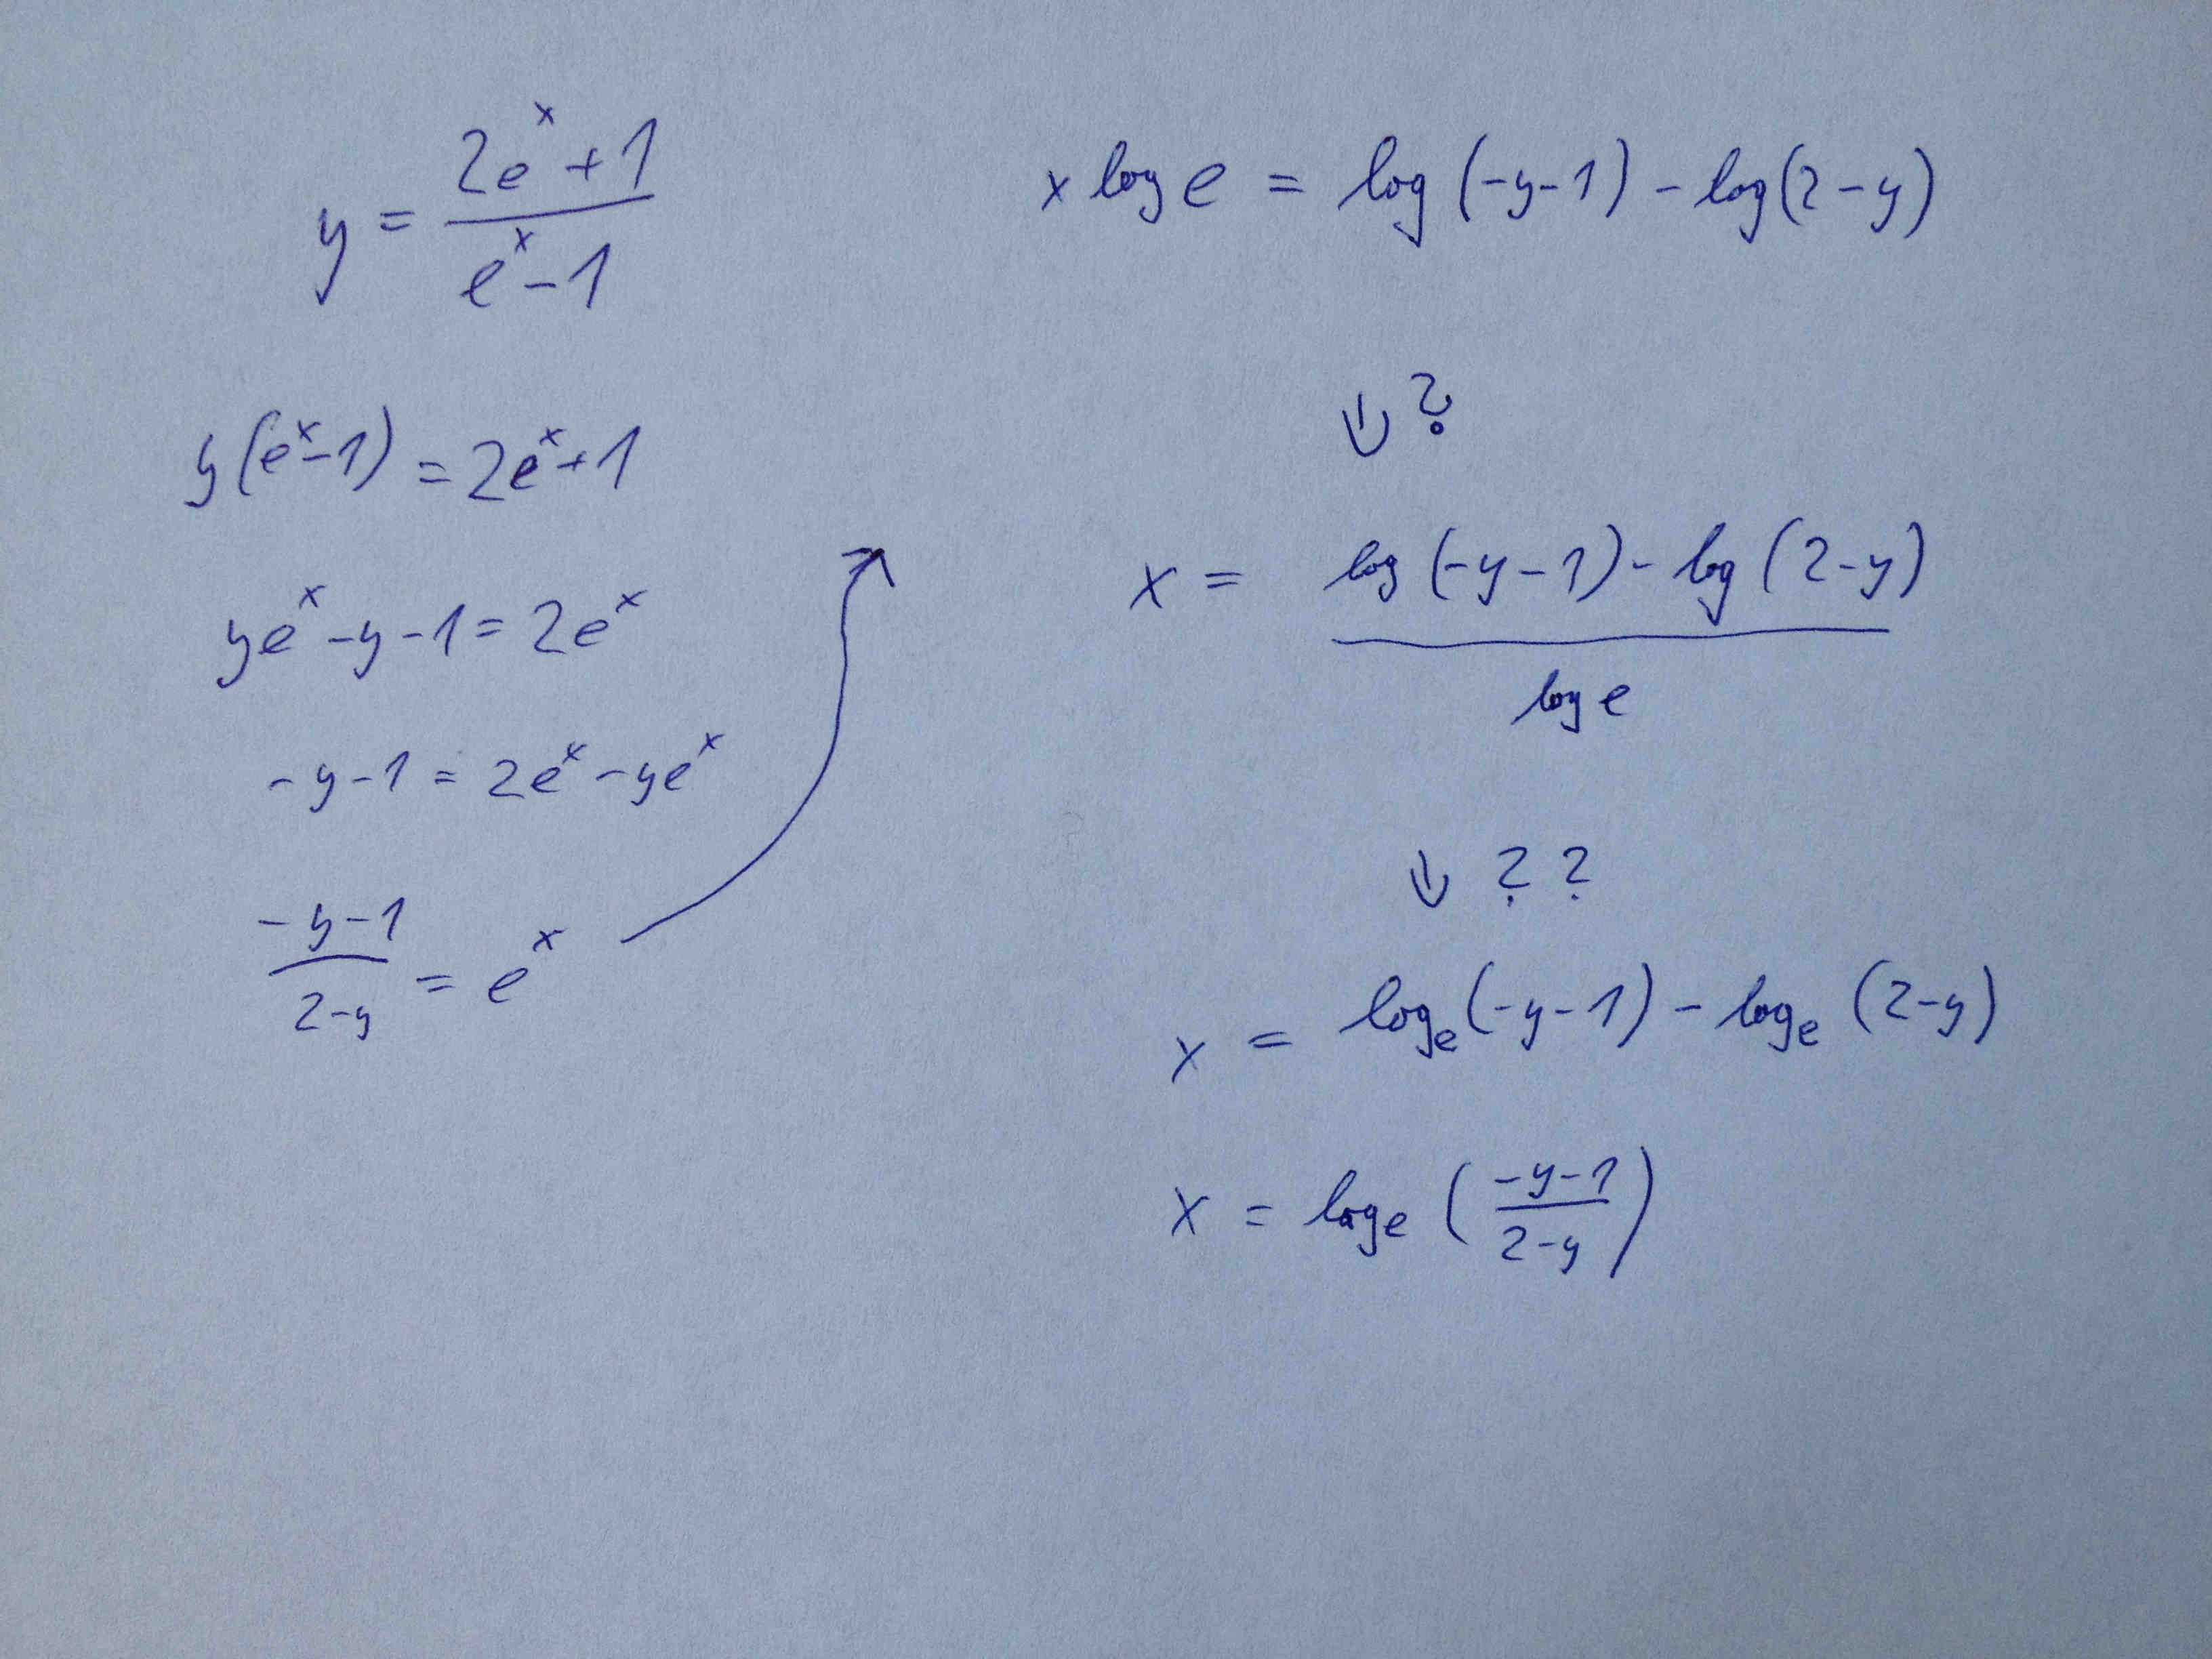 y = (2e^x + 1)/(e^x - 1)
y(e^x - 1) = 2e^x + 1
ye^x - y - 1 = 2e^x
-y - 1 = 2e^x - ye^x
(-y - 1)/(2 - y) = e^x
x log e = log(-y - 1) - log(2 - y)
⇓ ?
x = (log(-y - 1) - log(2 - y))/(log e)
⇓ ? ?
x = log_e(-y - 1) - log_e(2 - y)
x = log_e((-y - 1)/(2 - y))